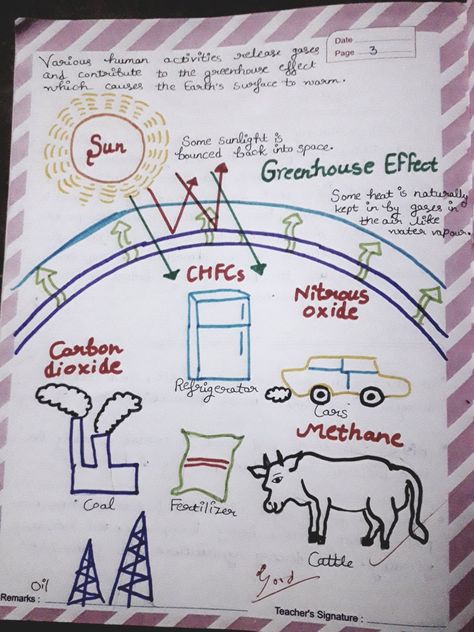 Date
Page 3
Various human activities release gases
and contribute to the greenhouse effect
which causes the Earth's surface to warm.
Sun
Some sunlight is
bounced back into space.
Greenhouse Effect
Some heat is naturally
kept in by gases in
the air like
water vapour.
CHFCs
Nitrous
oxide
Carbon
dioxide
Refrigerator
Cars
Methane
Coal
Fertilizer
Cattle
Oil
Good
Remarks :
Teacher's Signature :